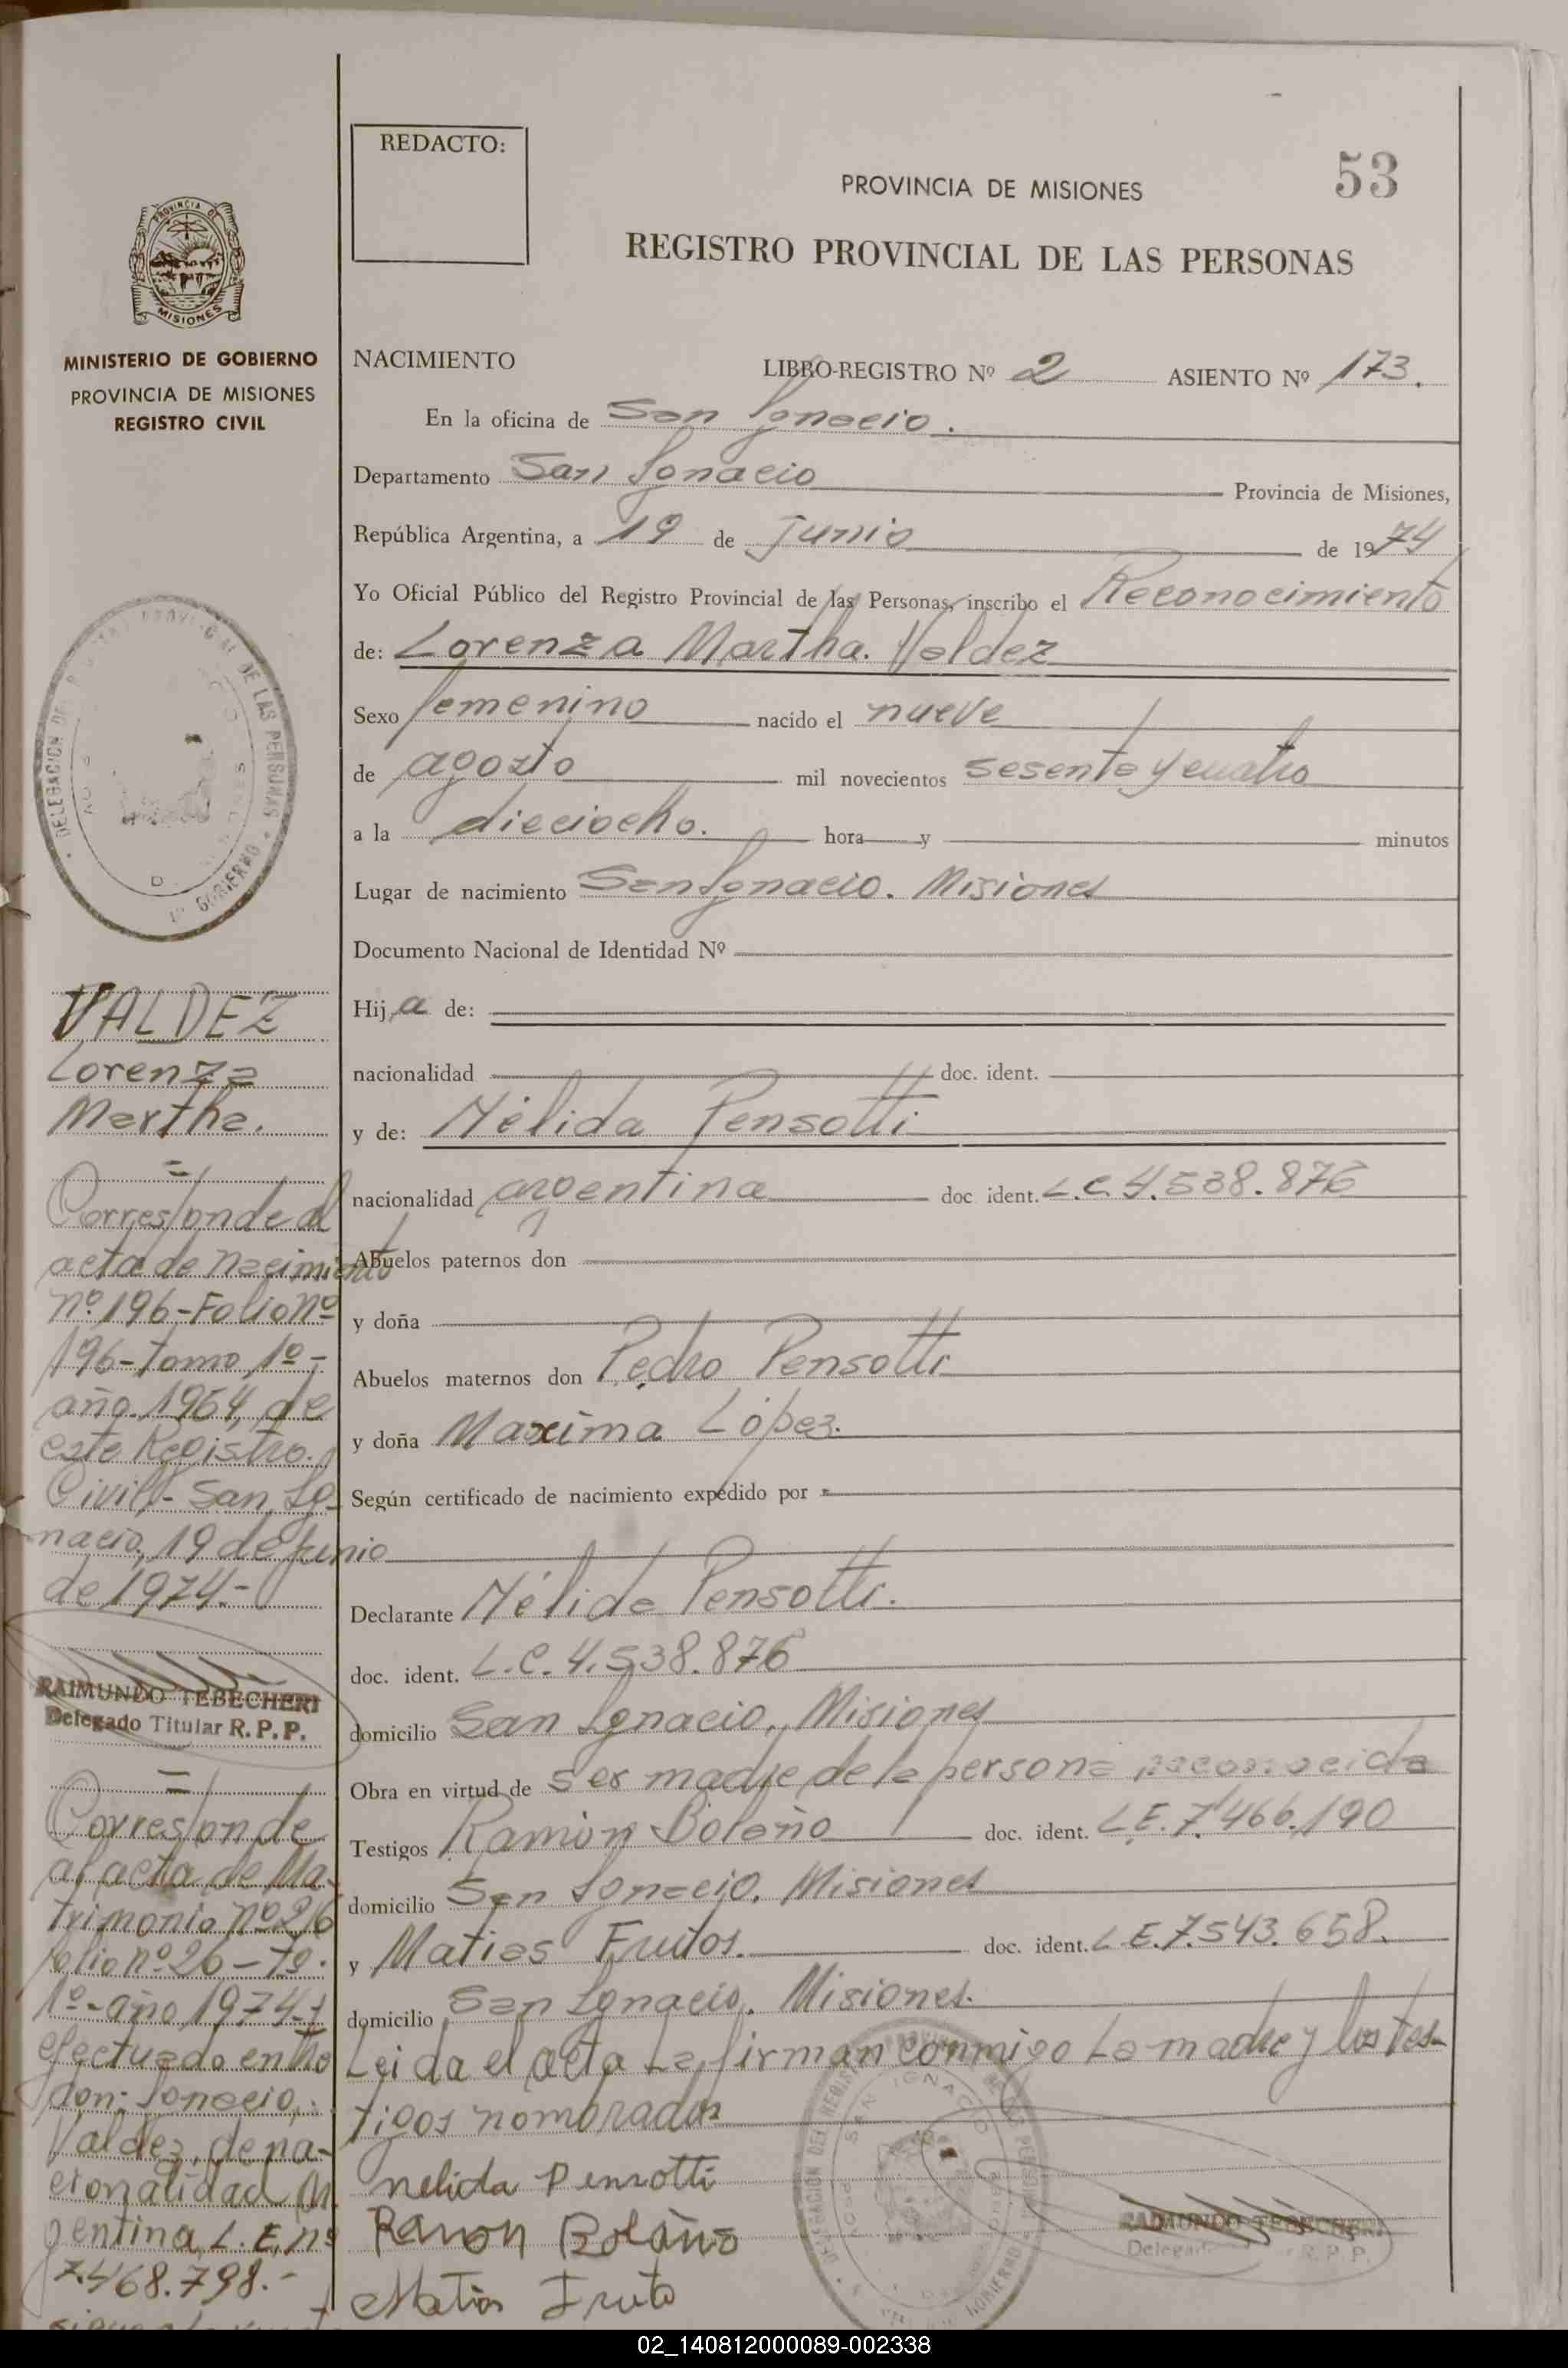 REDACTO:
53
PROVINCIA DE MISIONES
REGISTRO PROVINCIAL DE LAS PERSONAS
PROVINCIA DE
MISIONES
MINISTERIO DE GOBIERNO
PROVINCIA DE MISIONES
REGISTRO CIVIL
NACIMIENTO LIBRO-REGISTRO Nº 2 ASIENTO Nº 173.
En la oficina de San Ignacio.
Departamento San Ignacio Provincia de Misiones,
República Argentina, a 19 de Junio de 1974
Yo Oficial Público del Registro Provincial de las Personas, inscribo el Reconocimiento
de: Lorenza Martha. Valdez
Sexo femenino nacido el nueve
de agosto mil novecientos sesenta y cuatro
a la dieciocho. hora y minutos
Lugar de nacimiento San Ignacio. Misiones
Documento Nacional de Identidad Nº
Hija de:
nacionalidad doc. ident.
y de: Nélida Pensotti
nacionalidad argentina doc ident. L.C. 4.538.876
Abuelos paternos don
y doña
Abuelos maternos don Pedro Pensotti
y doña Maxima López.
Según certificado de nacimiento expedido por
Declarante Nélida Pensotti.
doc. ident. L.C. 4.538.876
domicilio San Ignacio, Misiones
Obra en virtud de ser madre de la persona reconocida
Testigos Ramón Bolaño doc. ident. L.E. 7.466.190
domicilio San Ignacio. Misiones
y Matias Frutos. doc. ident. L.E. 7.543.658.
domicilio San Ignacio. Misiones.
Leida el acta La firman conmigo La madre y los tes-
tigos nombrados
nelida Pensotti
Ramon Bolaño
Matias Fruto
RAIMUNDO TEBECHERI
Delegado R. P. P.
DELEGACION DEL REGISTRO PROVINCIAL DE LAS PERSONAS
SAN IGNACIO
GOBIERNO
DELEGACION DE LAS PERSONAS
GOBIERNO
VALDEZ
Lorenza
Martha.
=
Corresponde al
acta de nacimiento
nº 196-Folio nº
196-tomo 1º-
año 1964, de
este Registro
Civil- San Ig-
nacio, 19 de junio
de 1974.-
RAIMUNDO TEBECHERI
Delegado Titular R. P. P.
=
Corresponde
al acta de Ma-
trimonio nº 26
folio nº 26-Tº.
1º-año 1974-,
efectuado entre
don: Ignacio
Valdez, de na-
cionalidad Ar
gentina, L.E. nº
7.468.798.-
02_140812000089-002338